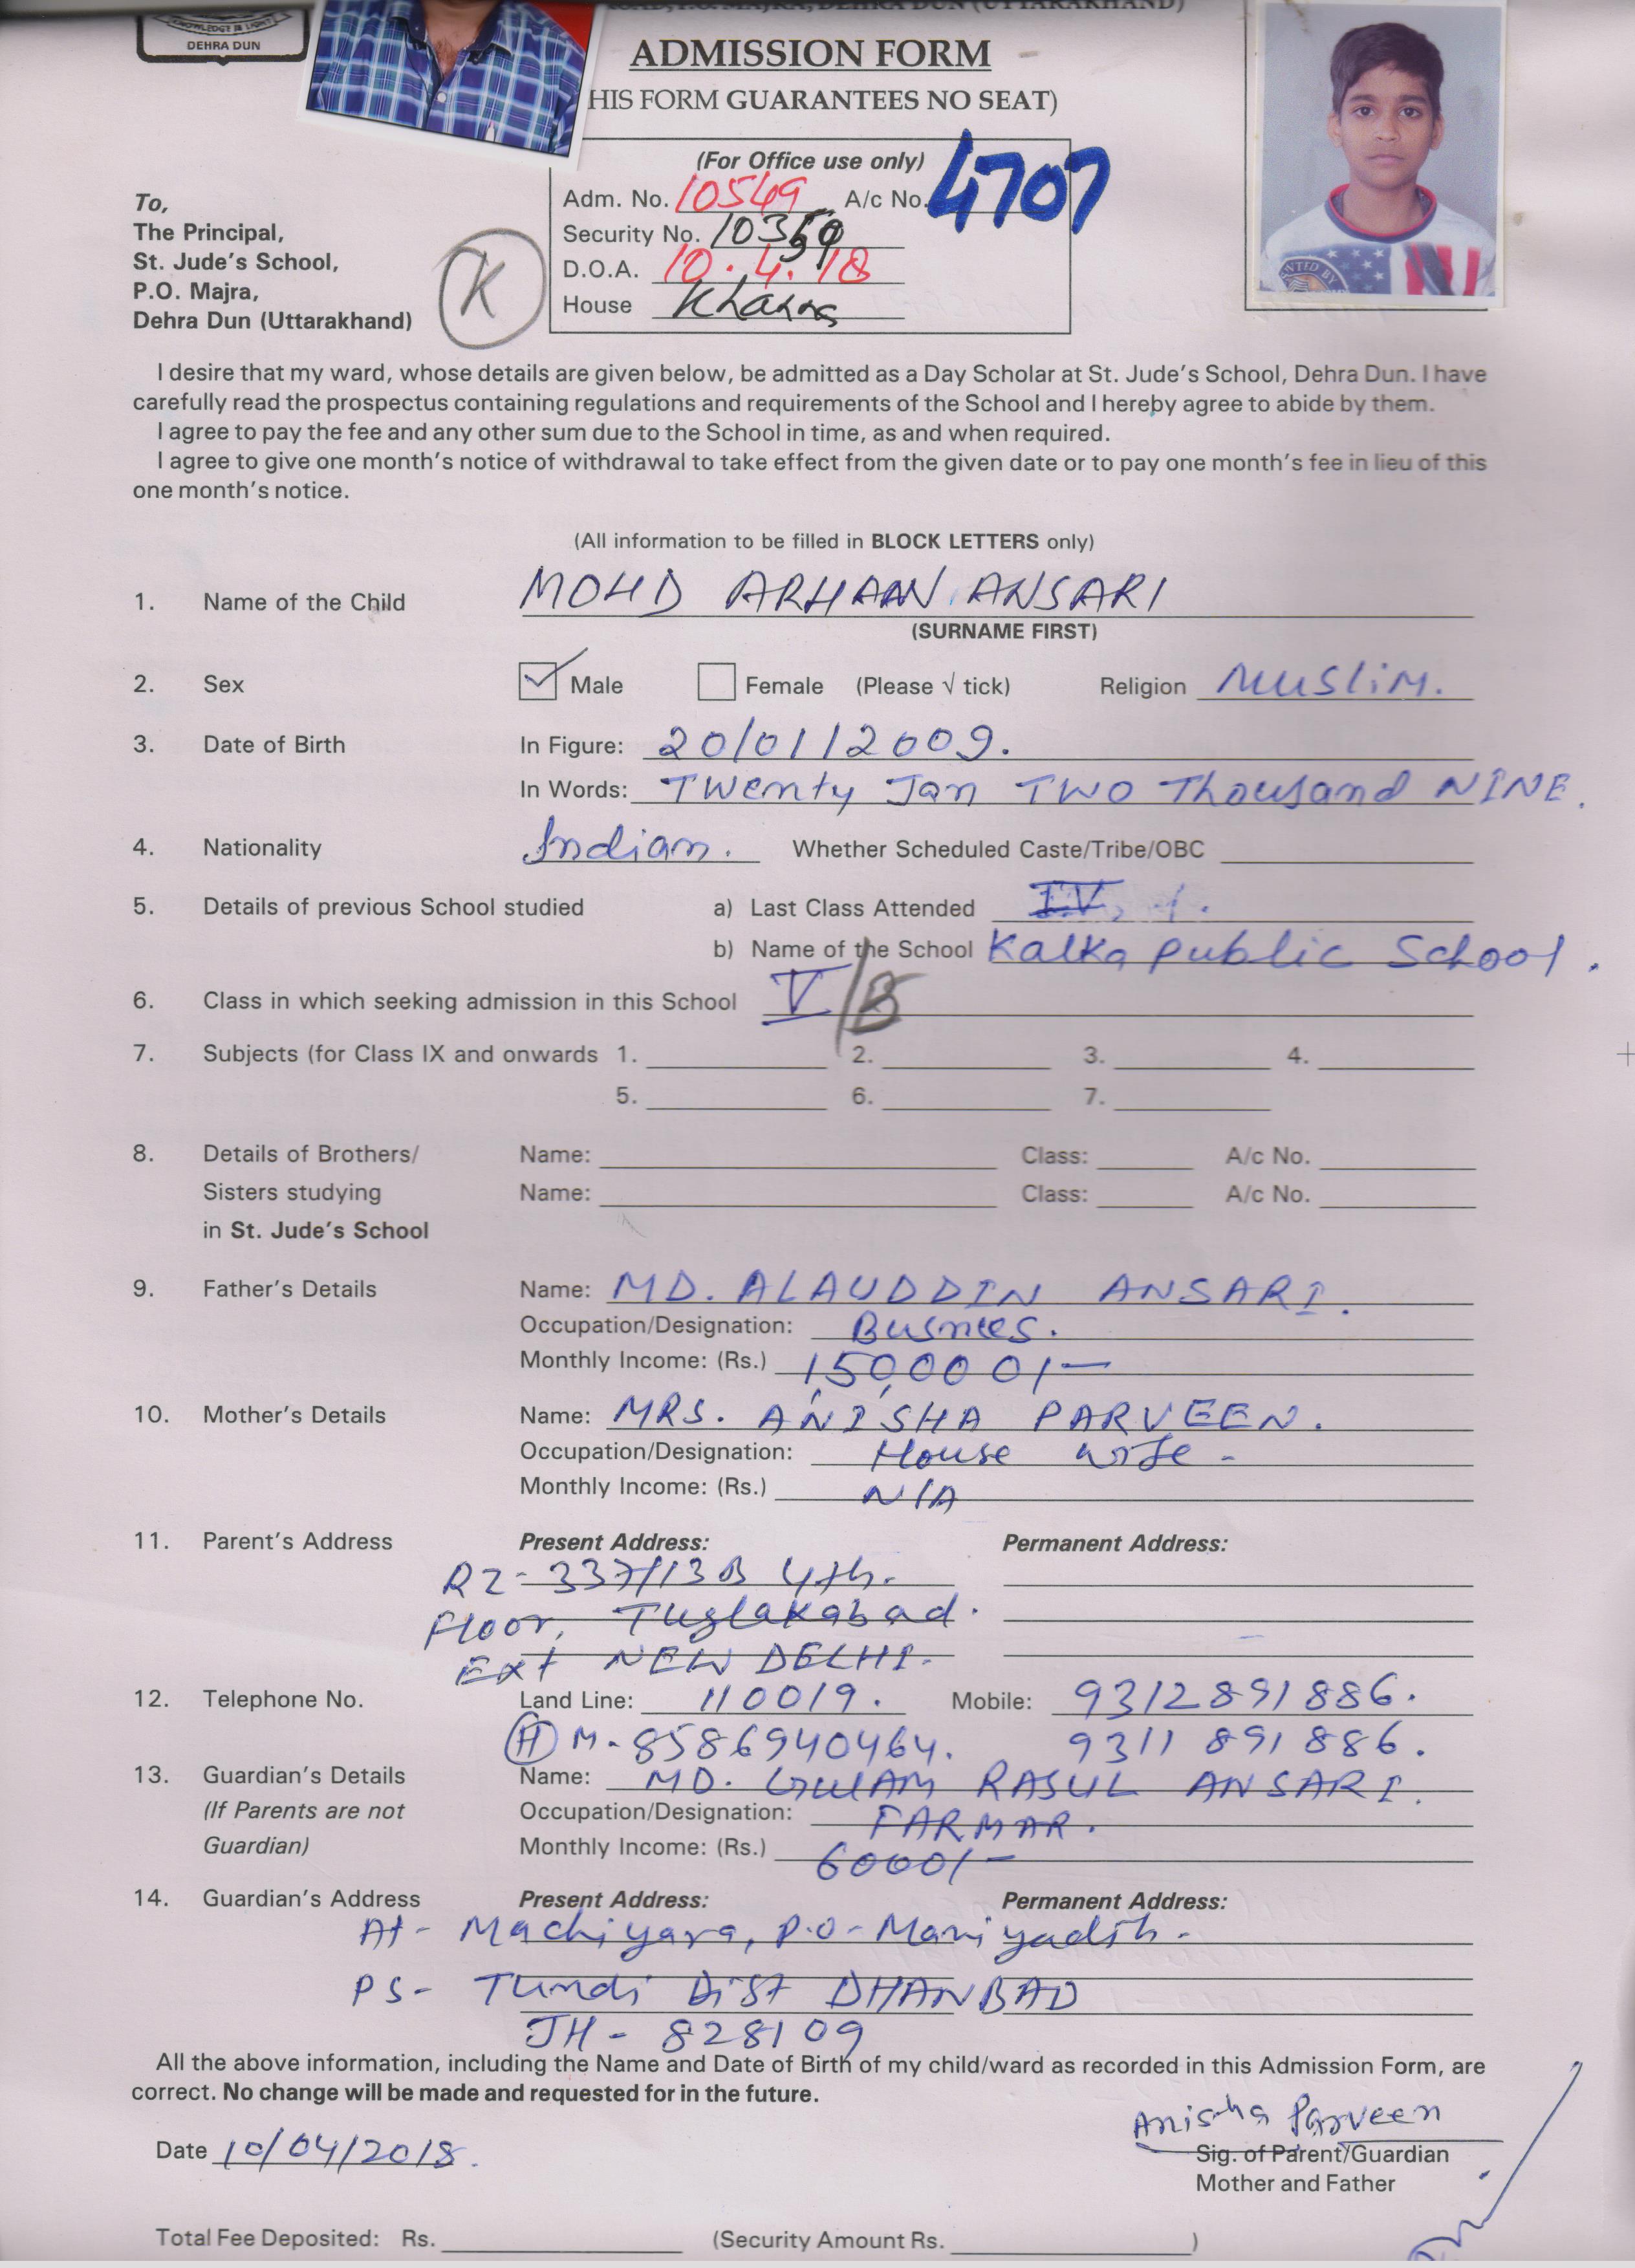 KNOWLEDGE IS LIGHT
DEHRA DUN
ROAD, P.O. MAJRA, DEHRA DUN (UTTARAKHAND)
ADMISSION FORM
HIS FORM GUARANTEES NO SEAT)
(For Office use only)
Adm. No. 10549 A/c No. 4707
Security No. 10359
D.O.A. 10.4.18
House Khanna
To,
The Principal,
St. Jude's School,
P.O. Majra,
Dehra Dun (Uttarakhand)
K
I desire that my ward, whose details are given below, be admitted as a Day Scholar at St. Jude's School, Dehra Dun. I have
carefully read the prospectus containing regulations and requirements of the School and I hereby agree to abide by them.
I agree to pay the fee and any other sum due to the School in time, as and when required.
I agree to give one month's notice of withdrawal to take effect from the given date or to pay one month's fee in lieu of this
one month's notice.
(All information to be filled in BLOCK LETTERS only)
1. Name of the Child MOHD ARHAAN ANSARI
(SURNAME FIRST)
2. Sex Male Female (Please √ tick) Religion MUSLiM.
3. Date of Birth In Figure: 20/01/2009.
In Words: TWenty Jan TWO Thousand NINE.
4. Nationality Indian. Whether Scheduled Caste/Tribe/OBC
5. Details of previous School studied a) Last Class Attended IV
b) Name of the School Kalka Public School.
6. Class in which seeking admission in this School V/B
7. Subjects (for Class IX and onwards 1. 2. 3. 4.
5. 6. 7.
8. Details of Brothers/ Name: Class: A/c No.
Sisters studying Name: Class: A/c No.
in St. Jude's School
9. Father's Details Name: MD. ALAUDDIN ANSARI.
Occupation/Designation: Busnies.
Monthly Income: (Rs.) 1,50,000/-
10. Mother's Details Name: MRS. ANISHA PARVEEN.
Occupation/Designation: House wife -
Monthly Income: (Rs.) N/A
11. Parent's Address Present Address: Permanent Address:
RZ-337/13B 4th.
Floor, Tuglakabad.
Ext NEW DELHI.
12. Telephone No. Land Line: 110019. Mobile: 9312891886.
(H) M-8586940464. 9311 891 886.
13. Guardian's Details Name: MD. GULAM RASUL ANSARI.
(If Parents are not Occupation/Designation: FARMAR.
Guardian) Monthly Income: (Rs.) 6000/-
14. Guardian's Address Present Address: Permanent Address:
At- Machiyara, P.O- Maniyadih-
PS- Tundi Dist DHANBAD
JH- 828109
All the above information, including the Name and Date of Birth of my child/ward as recorded in this Admission Form, are
correct. No change will be made and requested for in the future.
Anisha Parveen
Date 10/04/2018. Sig. of Parent/Guardian
Mother and Father
Total Fee Deposited: Rs. (Security Amount Rs. )